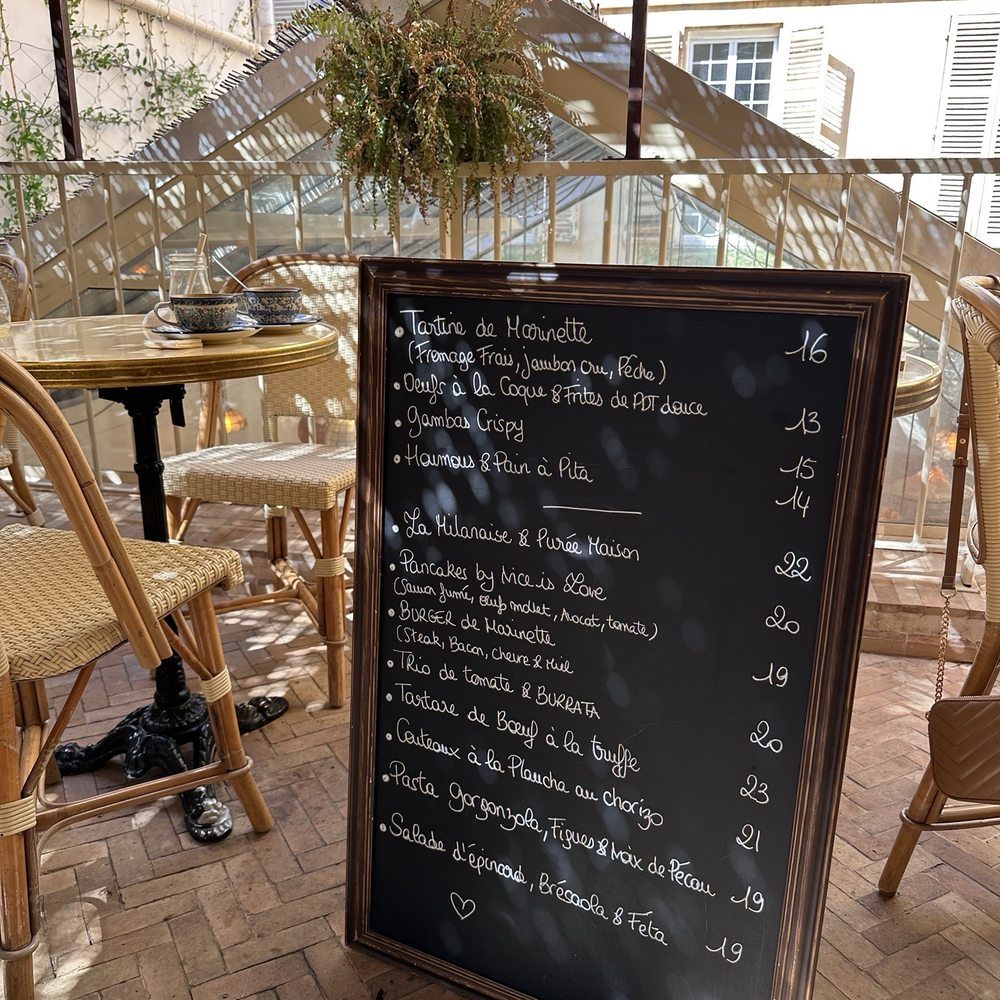 • Tartine de Marinette 16
(Fromage Frais, Jambon cru, Pêche)
• Oeufs à la Coque & Frites de PDT douce 13
• Gambas Crispy 15
• Houmous & Pain à Pita 14
• La Milanaise & Purée Maison 22
• Pancakes by Nice is Love 20
(Saumon fumé, Oeuf mollet, Avocat, tomate)
• BURGER de Marinette 19
(Steak, Bacon, chèvre & Miel
• TRio de tomate & BURRATA 20
• Tartare de Bœuf à la truffe 23
• Couteaux à la Plancha au chorizo 21
• Pasta gorgonzola, Figues & Noix de Pécan 19
• Salade d'épinard, Brésaola & Féta 19
♡